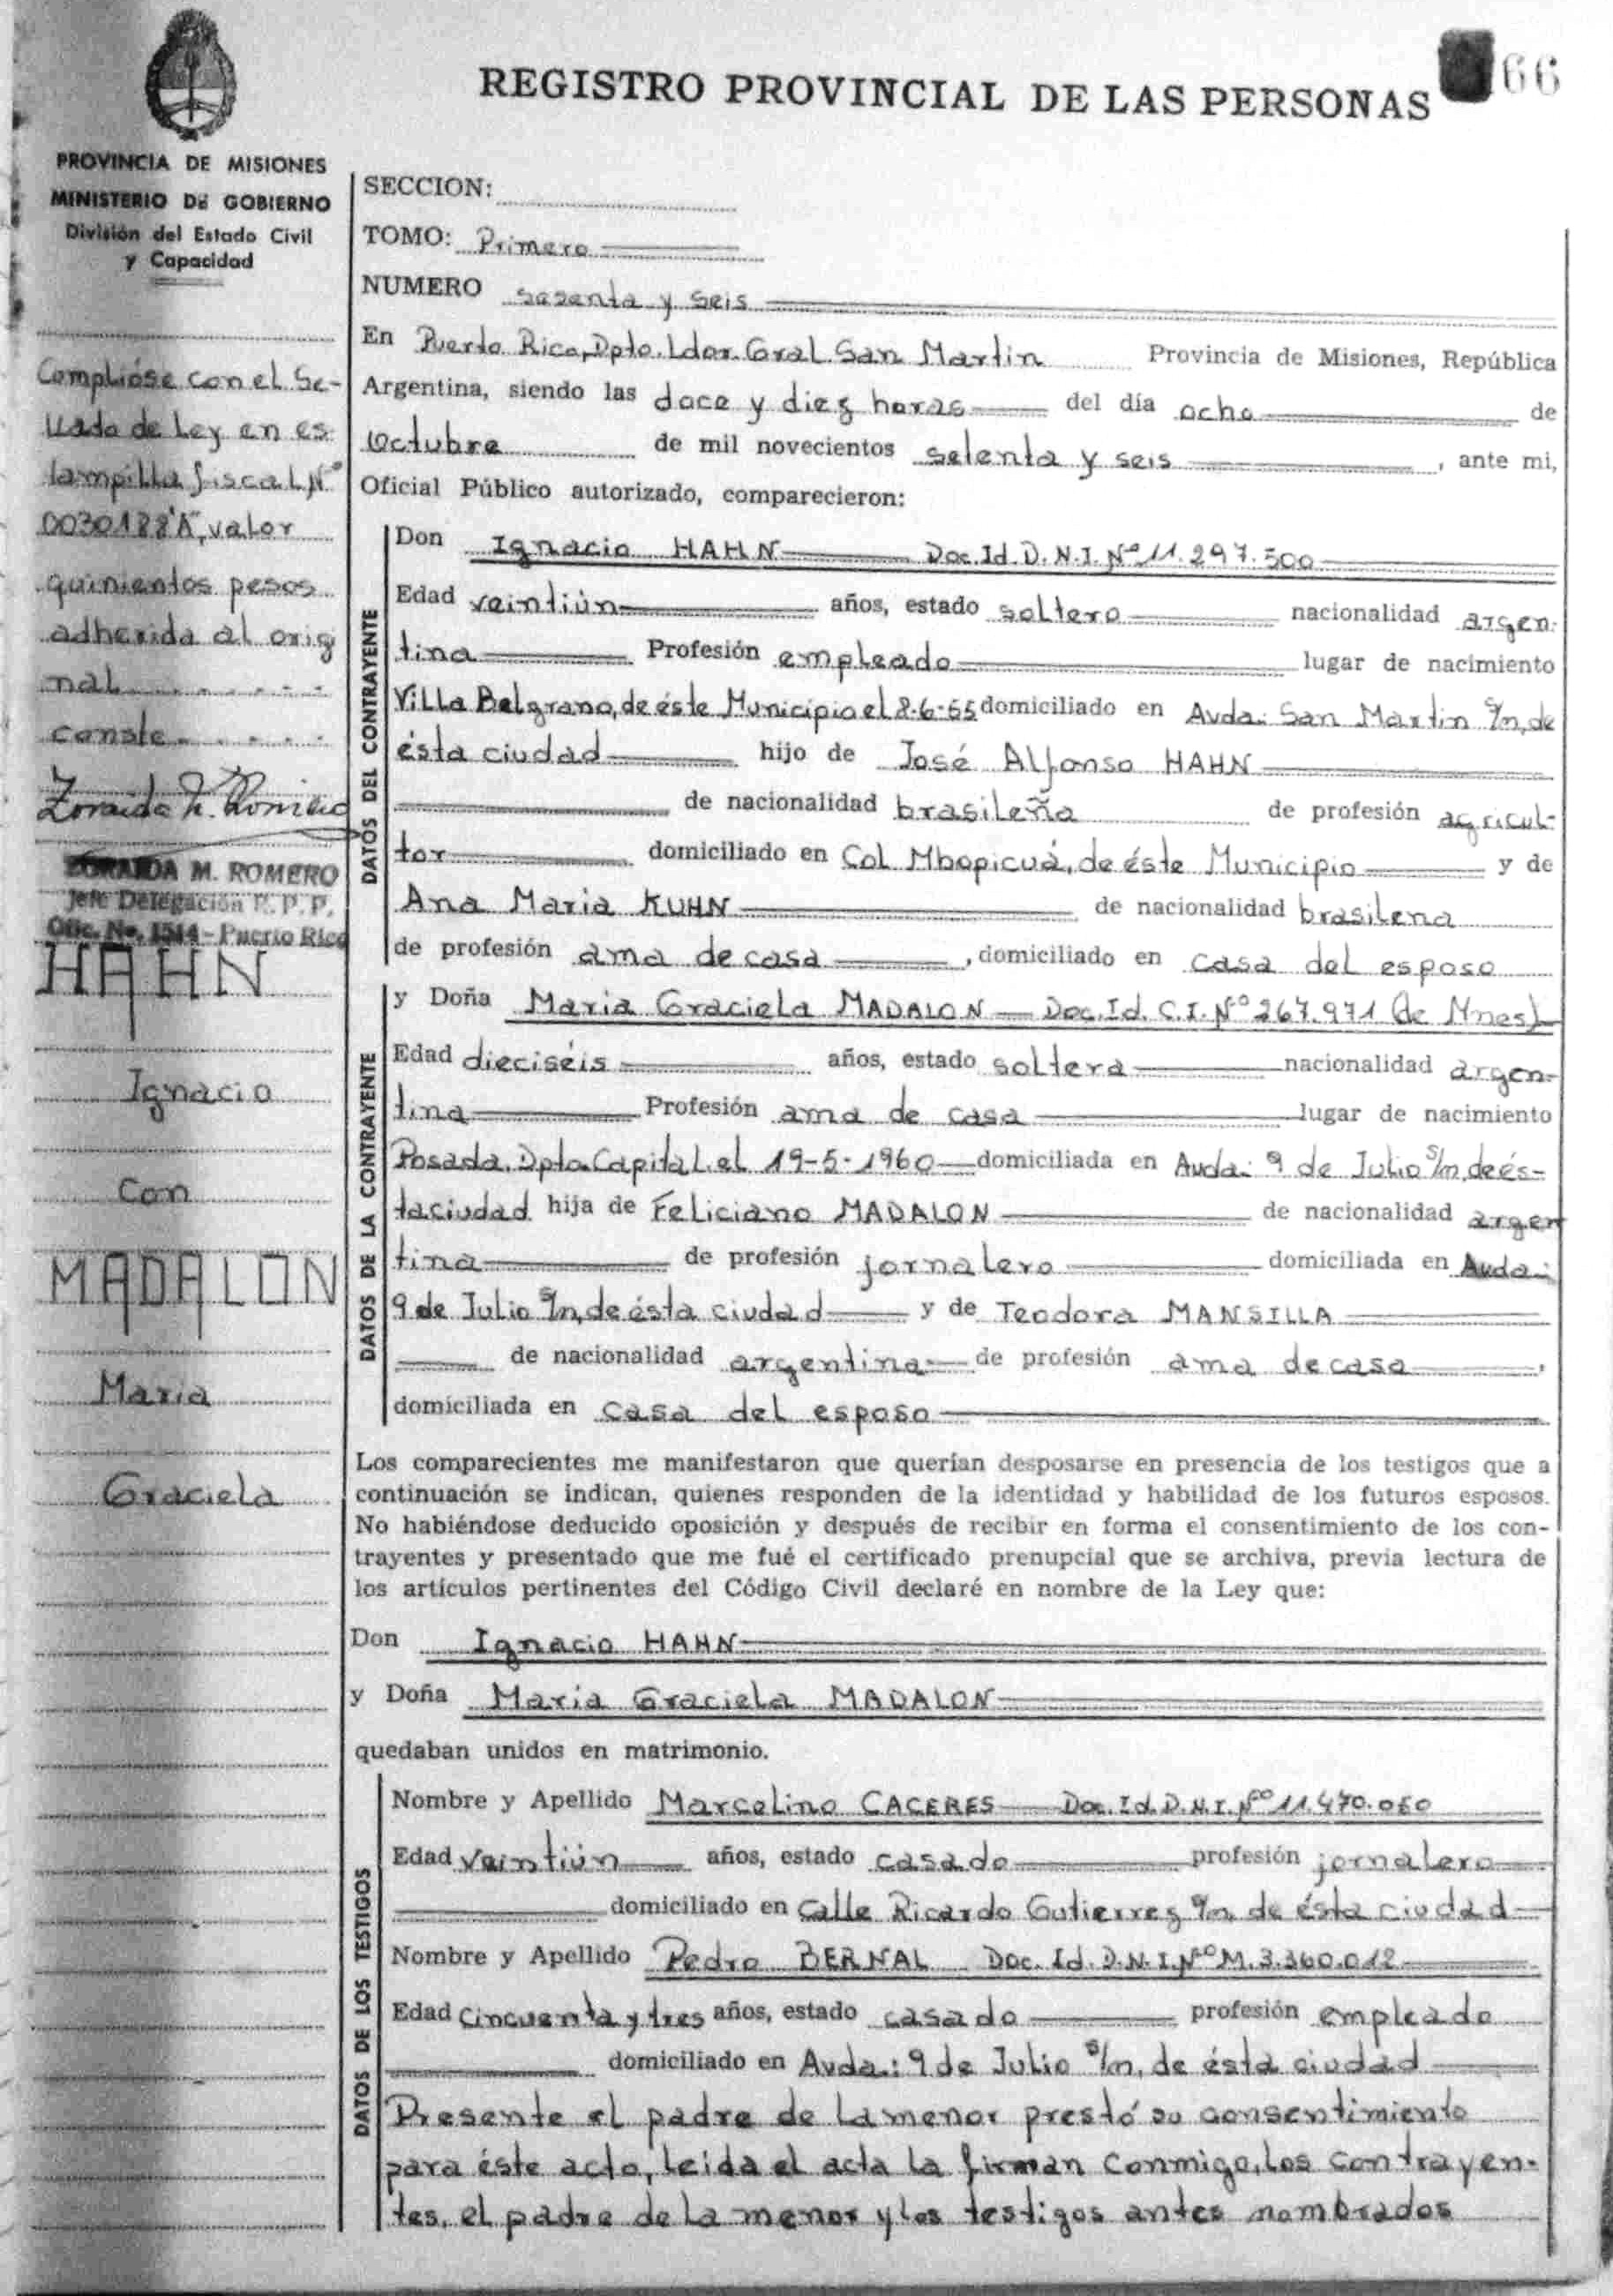 REGISTRO PROVINCIAL DE LAS PERSONAS
66
PROVINCIA DE MISIONES
MINISTERIO DE GOBIERNO
División del Estado Civil
y Capacidad
Complióse con el Se-
llado de Ley en es
tampilla fiscal Nº
0030188"A", valor
quinientos pesos
adherida al orig
nal
conste
Zoraida M. Romero
ZORAIDA M. ROMERO
Jefe Delegación P. P. P.
Ofic. No. 1514 - Puerto Rico
HAHN
Ignacio
con
MADALON
Maria
Graciela
SECCION:
TOMO: Primero
NUMERO sesenta y seis
En Puerto Rico, Dpto. Ldor. Gral San Martin Provincia de Misiones, República
Argentina, siendo las doce y diez horas del día ocho de
Octubre de mil novecientos setenta y seis, ante mi,
Oficial Público autorizado, comparecieron:
DATOS DEL CONTRAYENTE
Don Ignacio HAHN Doc. Id. D.N.I. Nº 11.297.500
Edad veintiún años, estado soltero nacionalidad argen-
tina Profesión empleado lugar de nacimiento
Villa Belgrano, de éste Municipio el 8-6-55 domiciliado en Avda: San Martin S/n, de
ésta ciudad hijo de José Alfonso HAHN
de nacionalidad brasileña de profesión agricul-
tor domiciliado en Col Mbopicuá, de éste Municipio y de
Ana Maria KUHN de nacionalidad brasilena
de profesión ama de casa, domiciliado en casa del esposo
DATOS DE LA CONTRAYENTE
y Doña Maria Graciela MADALON Doc. Id. C.I. Nº 267.971 (de Mnes)
Edad dieciséis años, estado soltera nacionalidad argen-
tina Profesión ama de casa lugar de nacimiento
Posada, Dpto. Capital, el 19-5-1960 domiciliada en Avda: 9 de Julio S/n, de és-
ta ciudad hija de Feliciano MADALON de nacionalidad argen
tina de profesión jornalero domiciliada en Avda:
9 de Julio S/n, de ésta ciudad y de Teodora MANSILLA
de nacionalidad argentina de profesión ama de casa,
domiciliada en casa del esposo
Los comparecientes me manifestaron que querían desposarse en presencia de los testigos que a
continuación se indican, quienes responden de la identidad y habilidad de los futuros esposos.
No habiéndose deducido oposición y después de recibir en forma el consentimiento de los con-
trayentes y presentado que me fué el certificado prenupcial que se archiva, previa lectura de
los artículos pertinentes del Código Civil declaré en nombre de la Ley que:
Don Ignacio HAHN
y Doña Maria Graciela MADALON
quedaban unidos en matrimonio.
DATOS DE LOS TESTIGOS
Nombre y Apellido Marcelino CACERES Doc. Id. D.N.I. Nº 11.470.060
Edad veintiún años, estado casado profesión jornalero
domiciliado en Calle Ricardo Gutierrez S/n, de ésta ciudad
Nombre y Apellido Pedro BERNAL Doc. Id. D.N.I. Nº M.3.360.012
Edad Cincuenta y tres años, estado casado profesión empleado
domiciliado en Avda.: 9 de Julio S/n, de ésta ciudad
Presente el padre de la menor prestó su consentimiento
para éste acto, leida el acta la firman conmigo, los contrayen-
tes, el padre de la menor y los testigos antes nombrados